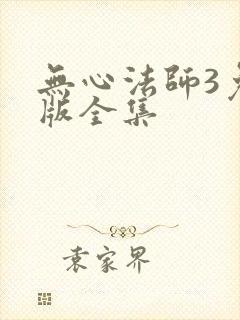 無心法師3
版全集
袁家界